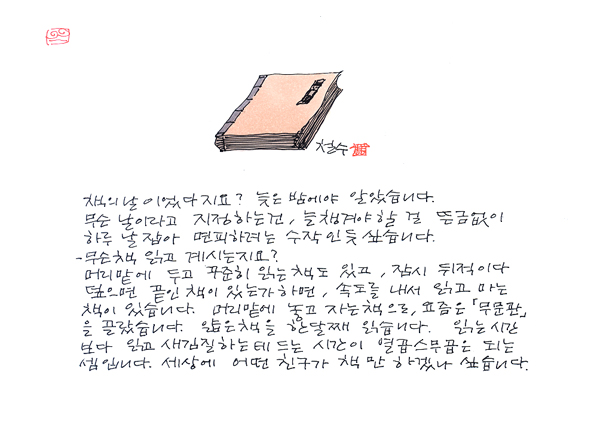 철수
책의 날이었다지요? 늦은 밤에야 알았습니다.
무슨 날이라고 지정하는건, 늘 챙겨야 할 걸 뜬금없이
하루 날 잡아 면피하려는 수작인 듯 싶습니다.
- 무슨 책 읽고 계시는지요?
머리맡에 두고 꾸준히 읽는 책도 있고, 잠시 뒤적이다
덮으면 끝인 책이 있는가 하면, 속도를 내서 읽고 마는
책이 있습니다. 머리맡에 놓고 자는 책으로, 요즘은 「무문관」
을 골랐습니다. 얇은 책을 한달째 읽습니다. 읽는 시간
보다 읽고 새김질하는데 드는 시간이 열곱스무곱은 되는
셈입니다. 세상에 어떤 친구가 책 만 하겠나 싶습니다.